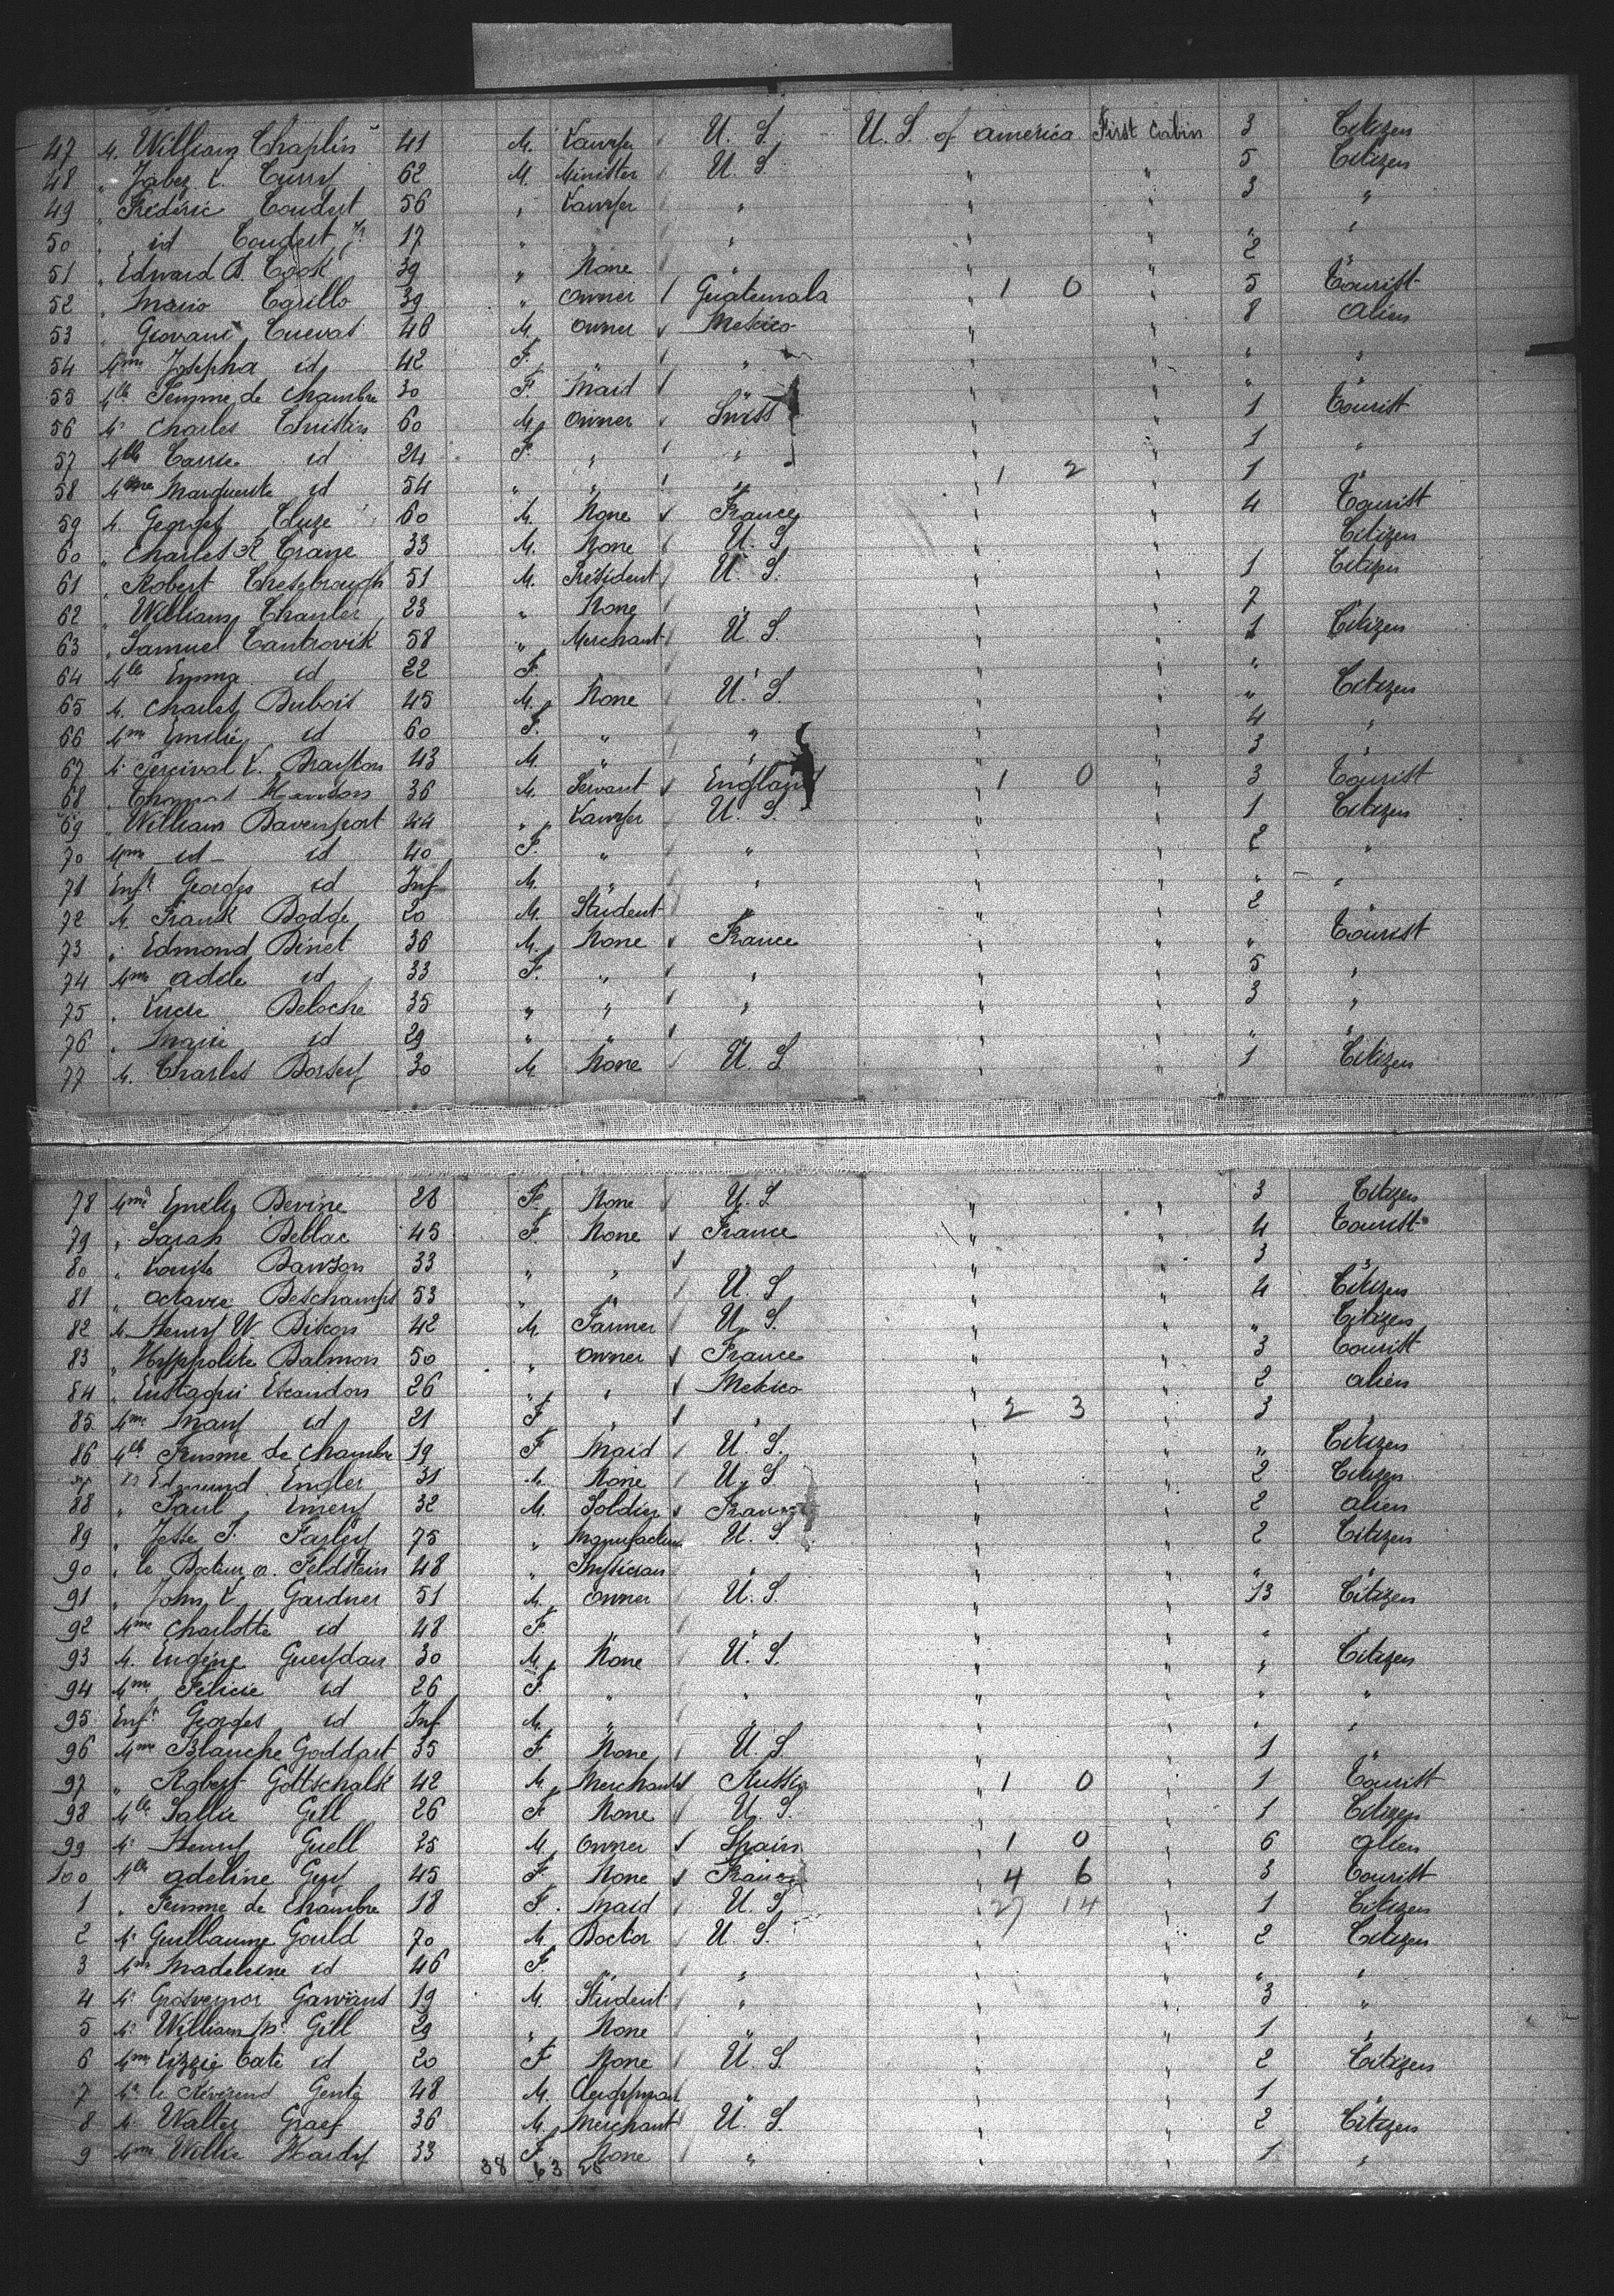 47 M. William Chaplin 41 M. Lawyer U. S. U. S. of america First Cabin 3 Citizen
48 " Jabez L. Curry 62 M. Minister U. S. " " 5 Citizen
49 " Frédéric Coudert 56 " Lawyer " " " 3 "
50 " id Coudert Jr 17 " " " " " " "
51 " Edward D. Cook 39 " None " " " 2 "
52 " Mario Carillo 39 " Owner Guatemala " 1 0 " 5 Tourist
53 " Giovani Cuevas 46 M. Owner Mexico " " 8 Alien
54 Mme Josepha id 42 F. " " " " " "
55 Mlle Femme de Chambre 30 F. Maid " " " " "
56 Mr Charles Christin 60 M. Owner Swiss " " 1 Tourist
57 Mlle Carrie id 24 F. " " " " 1 "
58 Mme Marguerite id 54 " " " " 1 2 " 1 "
59 M. Georges Cluze 60 M. None France " " 4 Tourist
60 " Charles R Crane 33 M. None U. S. " " Citizen
61 " Robert Chesebrough 51 M. Président U. S. " " 1 Citizen
62 " William Chanler 23 " None " " " 7
63 " Samuel Cantrovik 58 " Merchant U. S. " " 1 Citizen
64 Mlle Emma id 22 F. " " "
65 M. Charles Dubois 45 M. None U. S. " " " Citizen
66 Mme Emilie id 60 F. " " " " 4 "
67 Mr Percival L. 43 M. " " " " 3 "
68 " Thomas 36 M. Servant England " 1 0 " 3 Tourist
69 " William Davenport 44 " Lawyer U. S. " " 1 Citizen
70 Mme id id 40 F. " " " " 2 "
71 Enft Georges id Inf M. " " " " " "
72 M. Frank Dodge 20 M. Student " " " 2 "
73 " Edmond Binet 36 M. None France " " " Tourist
74 Mme adele id 33 F. " " " " 5 "
75 " Lucie Deloche 35 " " " " " 3 "
76 " Marie id 29 " " " " " " "
77 M. Charles Dorsey 30 M None U. S " " 1 Citizen
78 Mme Emelie Devine 28 F. None U. S " " 3 Citizen
79 " Sarah Deblac 45 F. None France " " 4 Tourist
80 " Louise Dawson 33 " " " " 3 "
81 " octavie Deschamps 53 " " U. S " " 4 Citizen
82 M. Henry W. 42 M. Farmer U. S. " " " Citizen
83 " Hyppolite Dalmon 50 " Owner France " " 3 Tourist
84 " Escandon 26 " " Mexico " " 2 alien
85 Mme Mary id 21 F " " " 2 3 " 3 "
86 Mlle Femme de Chambre 19 F Maid U. S. " " " Citizen
87 Mr Edmund Engler 31 M. None U. S " " 2 Citizen
88 " Paul Emery 32 M. Soldier France " " 2 alien
89 " Jesse J. Farley 75 " Manufacturer U. S " " 2 Citizen
90 " le Docteur a. Feldstein 48 " Physician " " " " "
91 " John L. Gardner 51 M. Owner U. S. " " 13 Citizen
92 Mme Charlotte id 48 F. " " " " " "
93 M. Eugène 30 M. None U. S. " " " Citizen
94 Mme Félicie id 26 F. " " " " " "
95 Enft Georges id Inf M. " " " " " "
96 Mme Blanche Goddart 35 F. None U. S " " 1 "
97 " Robert Gottschalk 42 M. Merchant Russia " 1 0 " 1 Tourist
98 Mlle Sallie Gill 26 F None U. S. " " 1 Citizen
99 Mr Henry Guell 25 M. Owner Spain " 1 0 " 6 alien
100 Mlle adeline Guy 45 F None France " 4 6 " 3 Tourist
1 " Femme de Chambre 18 F. Maid U. S. 27 14 " 1 Citizen
2 Mr Guillaume Gould 70 M. Doctor U. S. " " 2 Citizen
3 Mme Madeleine id 46 F. " " " " " "
4 Mr Grosvenor 19 M. Student " " " 3 "
5 Mr William Gill 29 " None " " " 1 "
6 Mme Lizzie Cate id 20 F None U. S. " " 2 Citizen
7 Mr le Révérend Gentz 48 M. Clergyman " " " 1 "
8 M Walter Graef 36 M. Merchant U. S. " " 2 Citizen
9 Mme Willie Hardy 33 F. None " " " 1 "
38 63 25